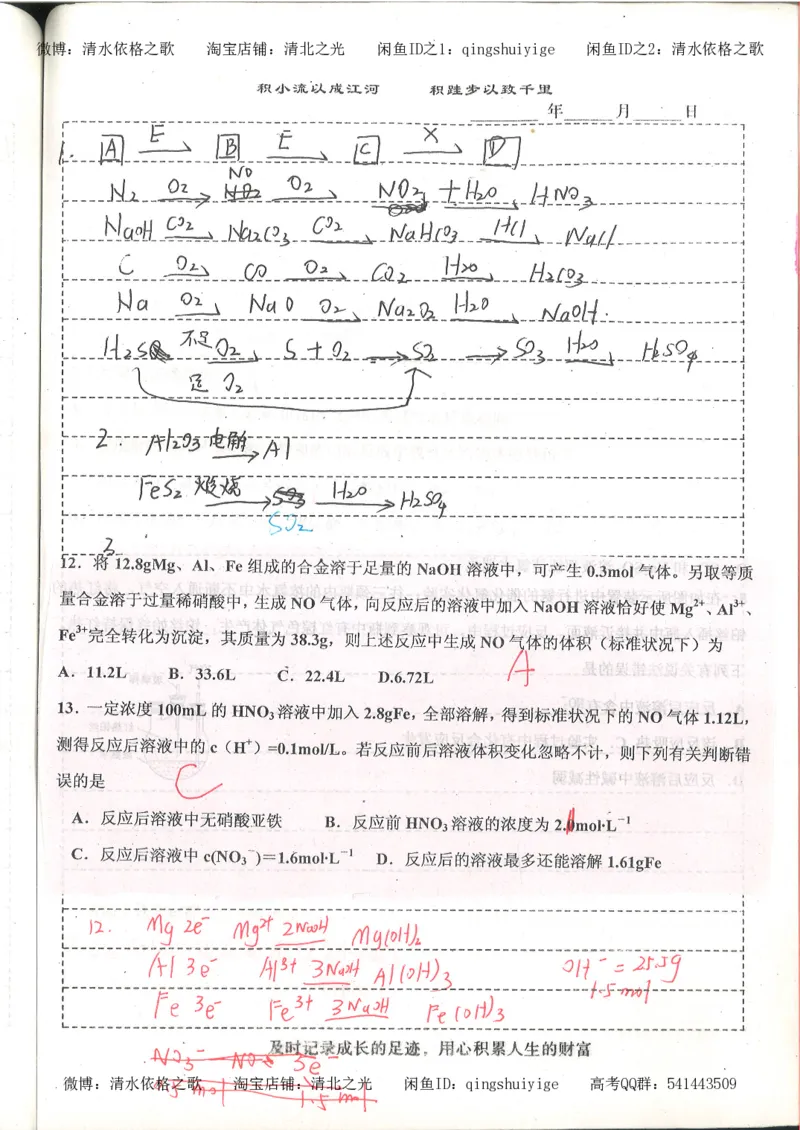 微博：清水依格之歌 淘宝店铺：清北之光 闲鱼ID之1：qingshuiyige 闲鱼ID之2：清水依格之歌
积小流以成江河 积跬步以致千里
年 月 日
1. A E→ B E→ C X→ D
NO
N₂ O₂→ NO₂ O₂→ NO₂ +H₂O→ HNO₃
NaOH CO₂→ Na₂CO₃ CO₂→ NaHCO₃ HCl→ NaCl
C O₂→ CO O₂→ CO₂ H₂O→ H₂CO₃
Na O₂→ Na O O₂→ Na₂O₂ H₂O→ NaOH.
H₂S 不足O₂→ S + O₂ → SO₂ → SO₃ H₂O→ H₂SO₄
足 O₂
2. Al₂O₃ 电解→ Al
FeS₂ 煅烧→ SO₃ H₂O→ H₂SO₄
SO₂
3.
12．将 12.8gMg、Al、Fe 组成的合金溶于足量的 NaOH 溶液中，可产生 0.3mol 气体。另取等质
量合金溶于过量稀硝酸中，生成 NO 气体，向反应后的溶液中加入 NaOH 溶液恰好使 Mg²⁺、Al³⁺、
Fe³⁺完全转化为沉淀，其质量为 38.3g，则上述反应中生成 NO 气体的体积（标准状况下）为
A．11.2L B．33.6L C．22.4L D.6.72L A
13．一定浓度 100mL 的 HNO₃ 溶液中加入 2.8gFe，全部溶解，得到标准状况下的 NO 气体 1.12L，
测得反应后溶液中的 c（H⁺）=0.1mol/L。若反应前后溶液体积变化忽略不计，则下列有关判断错
误的是 C
A．反应后溶液中无硝酸亚铁 B．反应前 HNO₃ 溶液的浓度为 2.0mol·L⁻¹
C．反应后溶液中 c(NO₃⁻)＝1.6mol·L⁻¹ D．反应后的溶液最多还能溶解 1.61gFe
12. Mg 2e⁻ Mg²⁺ 2NaOH Mg(OH)₂
Al 3e⁻ Al³⁺ 3NaOH Al(OH)₃ OH⁻ = 25.5g
Fe 3e⁻ Fe³⁺ 3NaOH Fe(OH)₃ 1.5mol
及时记录成长的足迹，用心积累人生的财富
NO₃⁻ NO 3e⁻
微博：清水依格之歌 淘宝店铺：清北之光 闲鱼ID：qingshuiyige 高考QQ群：541443509
5 mol 1.5 mol